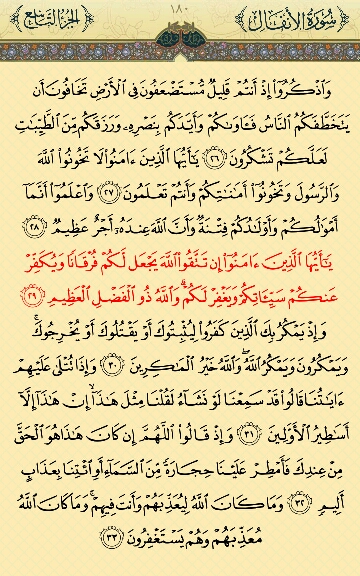 سُورَةُ الأَنفَال ١٨٠ الجُزءُ التَّاسِع
وَٱذْكُرُوٓا۟ إِذْ أَنتُمْ قَلِيلٌ مُّسْتَضْعَفُونَ فِى ٱلْأَرْضِ تَخَافُونَ أَن
يَتَخَطَّفَكُمُ ٱلنَّاسُ فَـَٔاوَىٰكُمْ وَأَيَّدَكُم بِنَصْرِهِۦ وَرَزَقَكُم مِّنَ ٱلطَّيِّبَـٰتِ
لَعَلَّكُمْ تَشْكُرُونَ ﴿٢٦﴾ يَـٰٓأَيُّهَا ٱلَّذِينَ ءَامَنُوا۟ لَا تَخُونُوا۟ ٱللَّهَ
وَٱلرَّسُولَ وَتَخُونُوٓا۟ أَمَـٰنَـٰتِكُمْ وَأَنتُمْ تَعْلَمُونَ ﴿٢٧﴾ وَٱعْلَمُوٓا۟ أَنَّمَآ
أَمْوَٰلُكُمْ وَأَوْلَـٰدُكُمْ فِتْنَةٌ وَأَنَّ ٱللَّهَ عِندَهُۥٓ أَجْرٌ عَظِيمٌ ﴿٢٨﴾
يَـٰٓأَيُّهَا ٱلَّذِينَ ءَامَنُوٓا۟ إِن تَتَّقُوا۟ ٱللَّهَ يَجْعَل لَّكُمْ فُرْقَانًا وَيُكَفِّرْ
عَنكُمْ سَيِّـَٔاتِكُمْ وَيَغْفِرْ لَكُمْ ۗ وَٱللَّهُ ذُو ٱلْفَضْلِ ٱلْعَظِيمِ ﴿٢٩﴾
وَإِذْ يَمْكُرُ بِكَ ٱلَّذِينَ كَفَرُوا۟ لِيُثْبِتُوكَ أَوْ يَقْتُلُوكَ أَوْ يُخْرِجُوكَ ۚ
وَيَمْكُرُونَ وَيَمْكُرُ ٱللَّهُ ۖ وَٱللَّهُ خَيْرُ ٱلْمَـٰكِرِينَ ﴿٣٠﴾ وَإِذَا تُتْلَىٰ عَلَيْهِمْ
ءَايَـٰتُنَا قَالُوا۟ قَدْ سَمِعْنَا لَوْ نَشَآءُ لَقُلْنَا مِثْلَ هَـٰذَآ ۙ إِنْ هَـٰذَآ إِلَّآ
أَسَـٰطِيرُ ٱلْأَوَّلِينَ ﴿٣١﴾ وَإِذْ قَالُوا۟ ٱللَّهُمَّ إِن كَانَ هَـٰذَا هُوَ ٱلْحَقَّ
مِنْ عِندِكَ فَأَمْطِرْ عَلَيْنَا حِجَارَةً مِّنَ ٱلسَّمَآءِ أَوِ ٱئْتِنَا بِعَذَابٍ
أَلِيمٍ ﴿٣٢﴾ وَمَا كَانَ ٱللَّهُ لِيُعَذِّبَهُمْ وَأَنتَ فِيهِمْ ۚ وَمَا كَانَ ٱللَّهُ
مُعَذِّبَهُمْ وَهُمْ يَسْتَغْفِرُونَ ﴿٣٣﴾